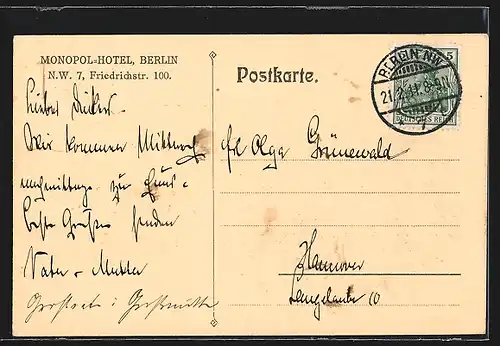 MONOPOL=HOTEL, BERLIN
N.W. 7, Friedrichstr. 100.
Postkarte.
BERLIN NW
21.2.11. 8-9N
5
DEUTSCHES REICH
Wir kommen Mittwoch
nachmittags zu Haus.
beste Grüße senden
Vater u. Mutter
frl Olga Grünewald
Hannover
Langelaube 10